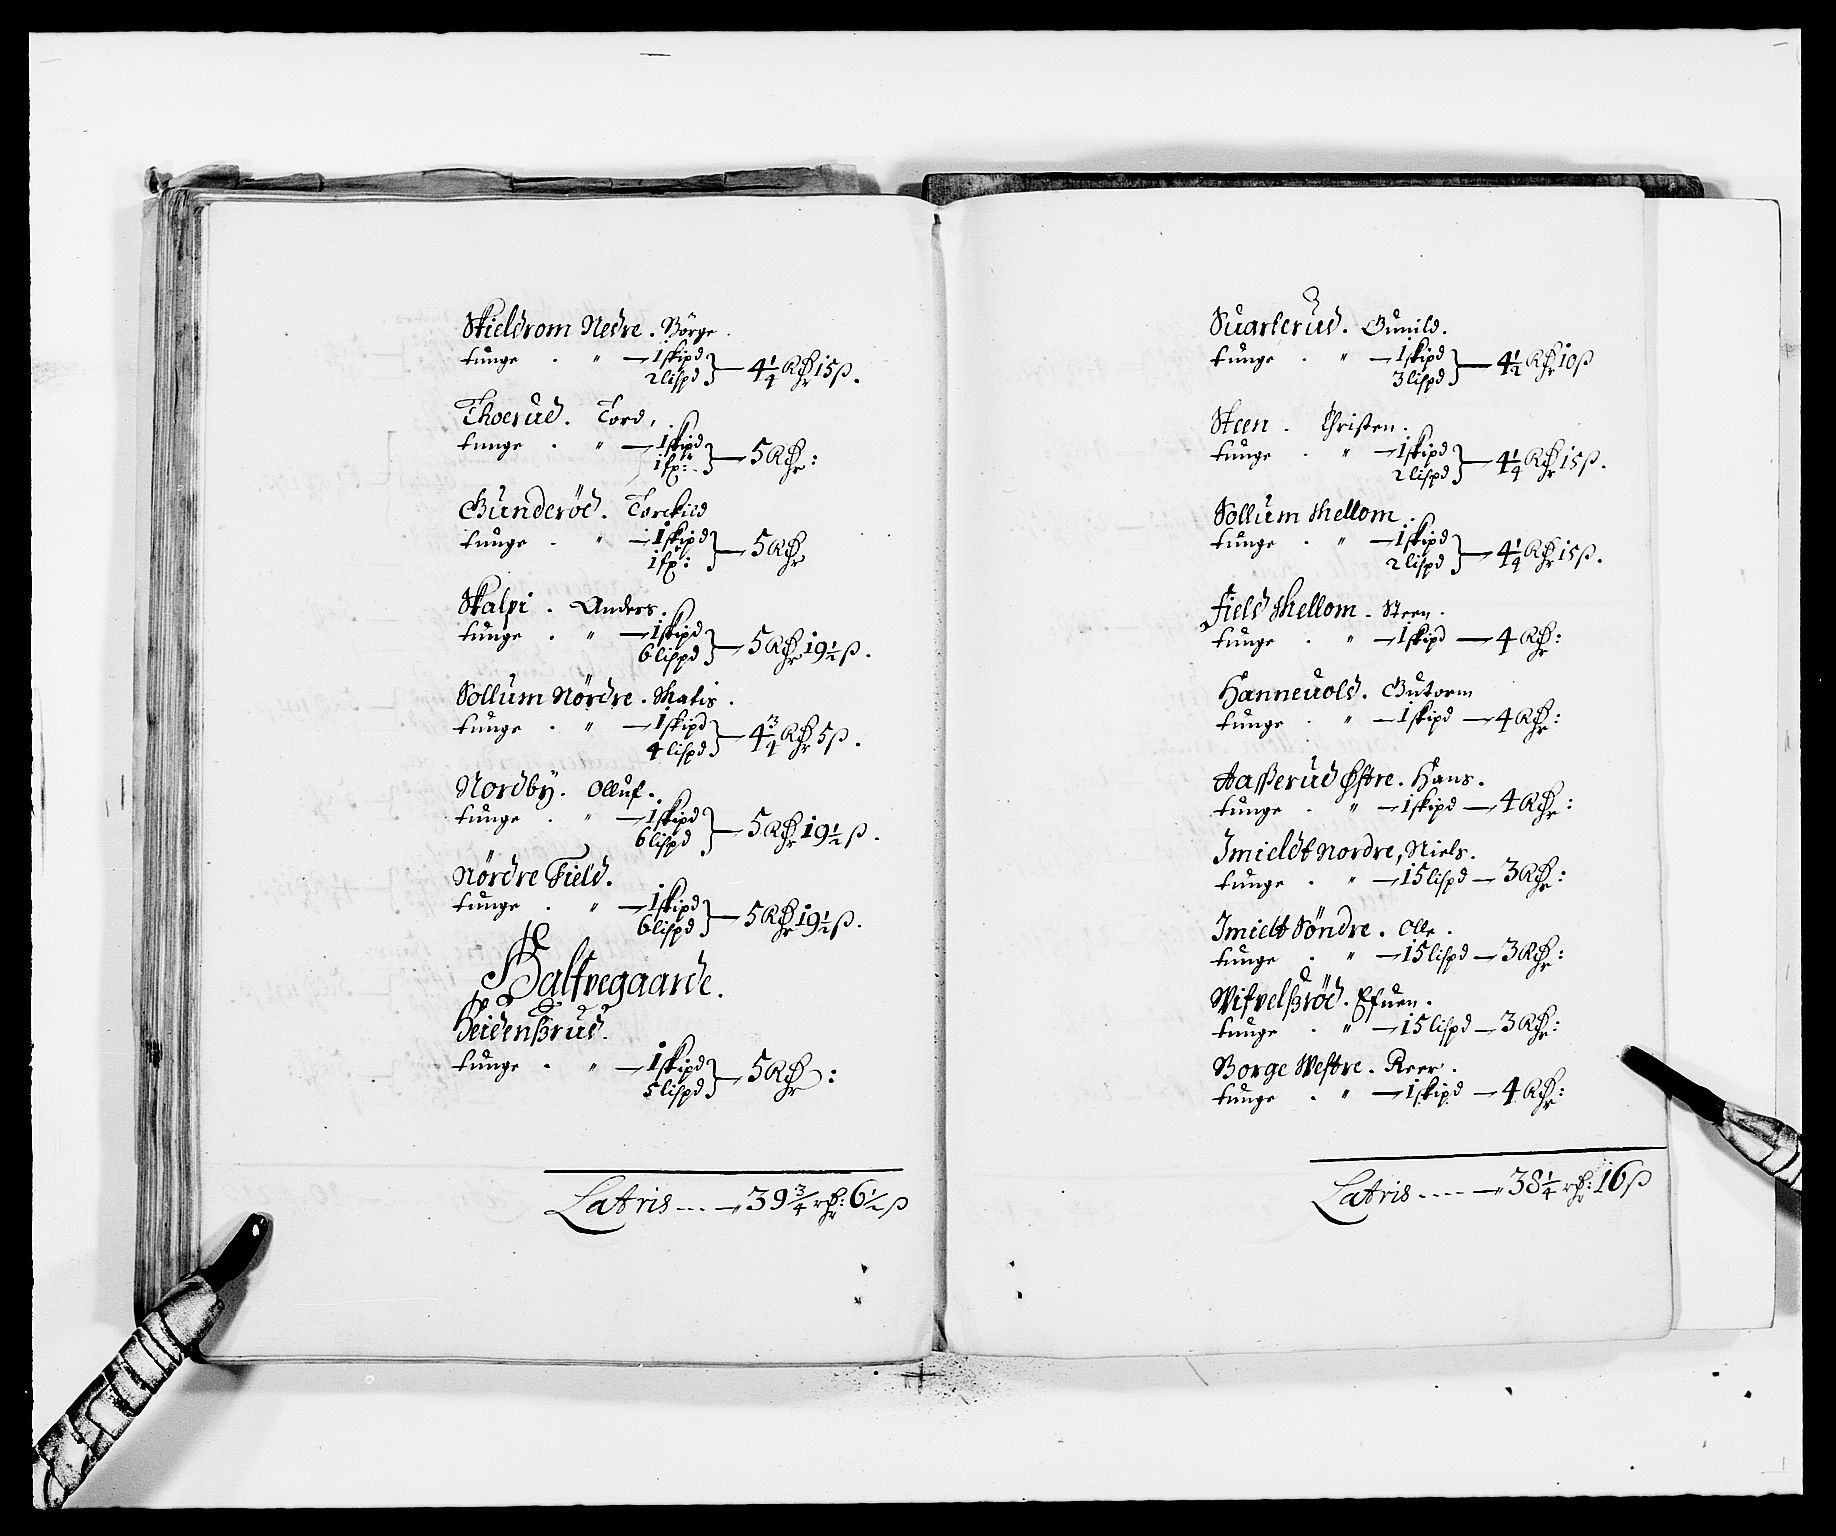 Skieldrom Nedre. Börge.
tunge . " — 1 skipd
2 lispd } — 4 1/4 Rdr 15 ß.
Thoerud. Tord.
tunge . " — 1 skipd
1 sp: } — 5 Rdr:
Gunderöd. Torckild
tunge . " — 1 skipd
1 sp: } — 5 Rdr
Skalpi. Anders.
tunge . " — 1 skipd
6 lispd } — 5 Rdr 19 1/2 ß.
Sollum Nördre. Matis.
tunge . " — 1 skipd
4 lispd } — 4 3/4 Rdr 5 ß.
Nordby. Olluf.
tunge . " — 1 skipd
6 lispd } — 5 Rdr 19 1/2 ß.
Nördre Field.
tunge . " — 1 skipd
6 lispd } — 5 Rdr 19 1/2 ß.
Halfvegaarde.
Heidenßrud.
tunge . " — 1 skipd
5 lispd } — 5 Rdr:
Latris --- — 39 3/4 rdr: 6 1/2 ß
Suarterud. Gunild.
tunge . " — 1 skipd
3 lispd } — 4 1/2 Rdr 10 ß
Steen. Christen.
tunge . " — 1 skipd
2 lispd } — 4 1/4 Rdr 15 ß.
Sollum Mellom.
tunge . " — 1 skipd
2 lispd } — 4 1/4 Rdr 15 ß.
Field Mellom. Steen.
tunge . " — 1 skipd — 4 Rdr:
Hanneuold. Gutorm
tunge . " — 1 skipd — 4 Rdr:
Aaßerud Östre. Hans.
tunge . " — 1 skipd — 4 Rdr:
Imieldt Nordre, Niels.
tunge . " — 15 lispd — 3 Rdr:
Imieldt Söndre. Olle.
tunge . " — 15 lispd — 3 Rdr:
Witvelßröd. Efuen.
tunge . " — 15 lispd — 3 Rdr:
Borge Westre. Reer.
tunge . " — 1 skipd — 4 Rdr:
Latris ---- — 38 1/4 rdr: 16 ß